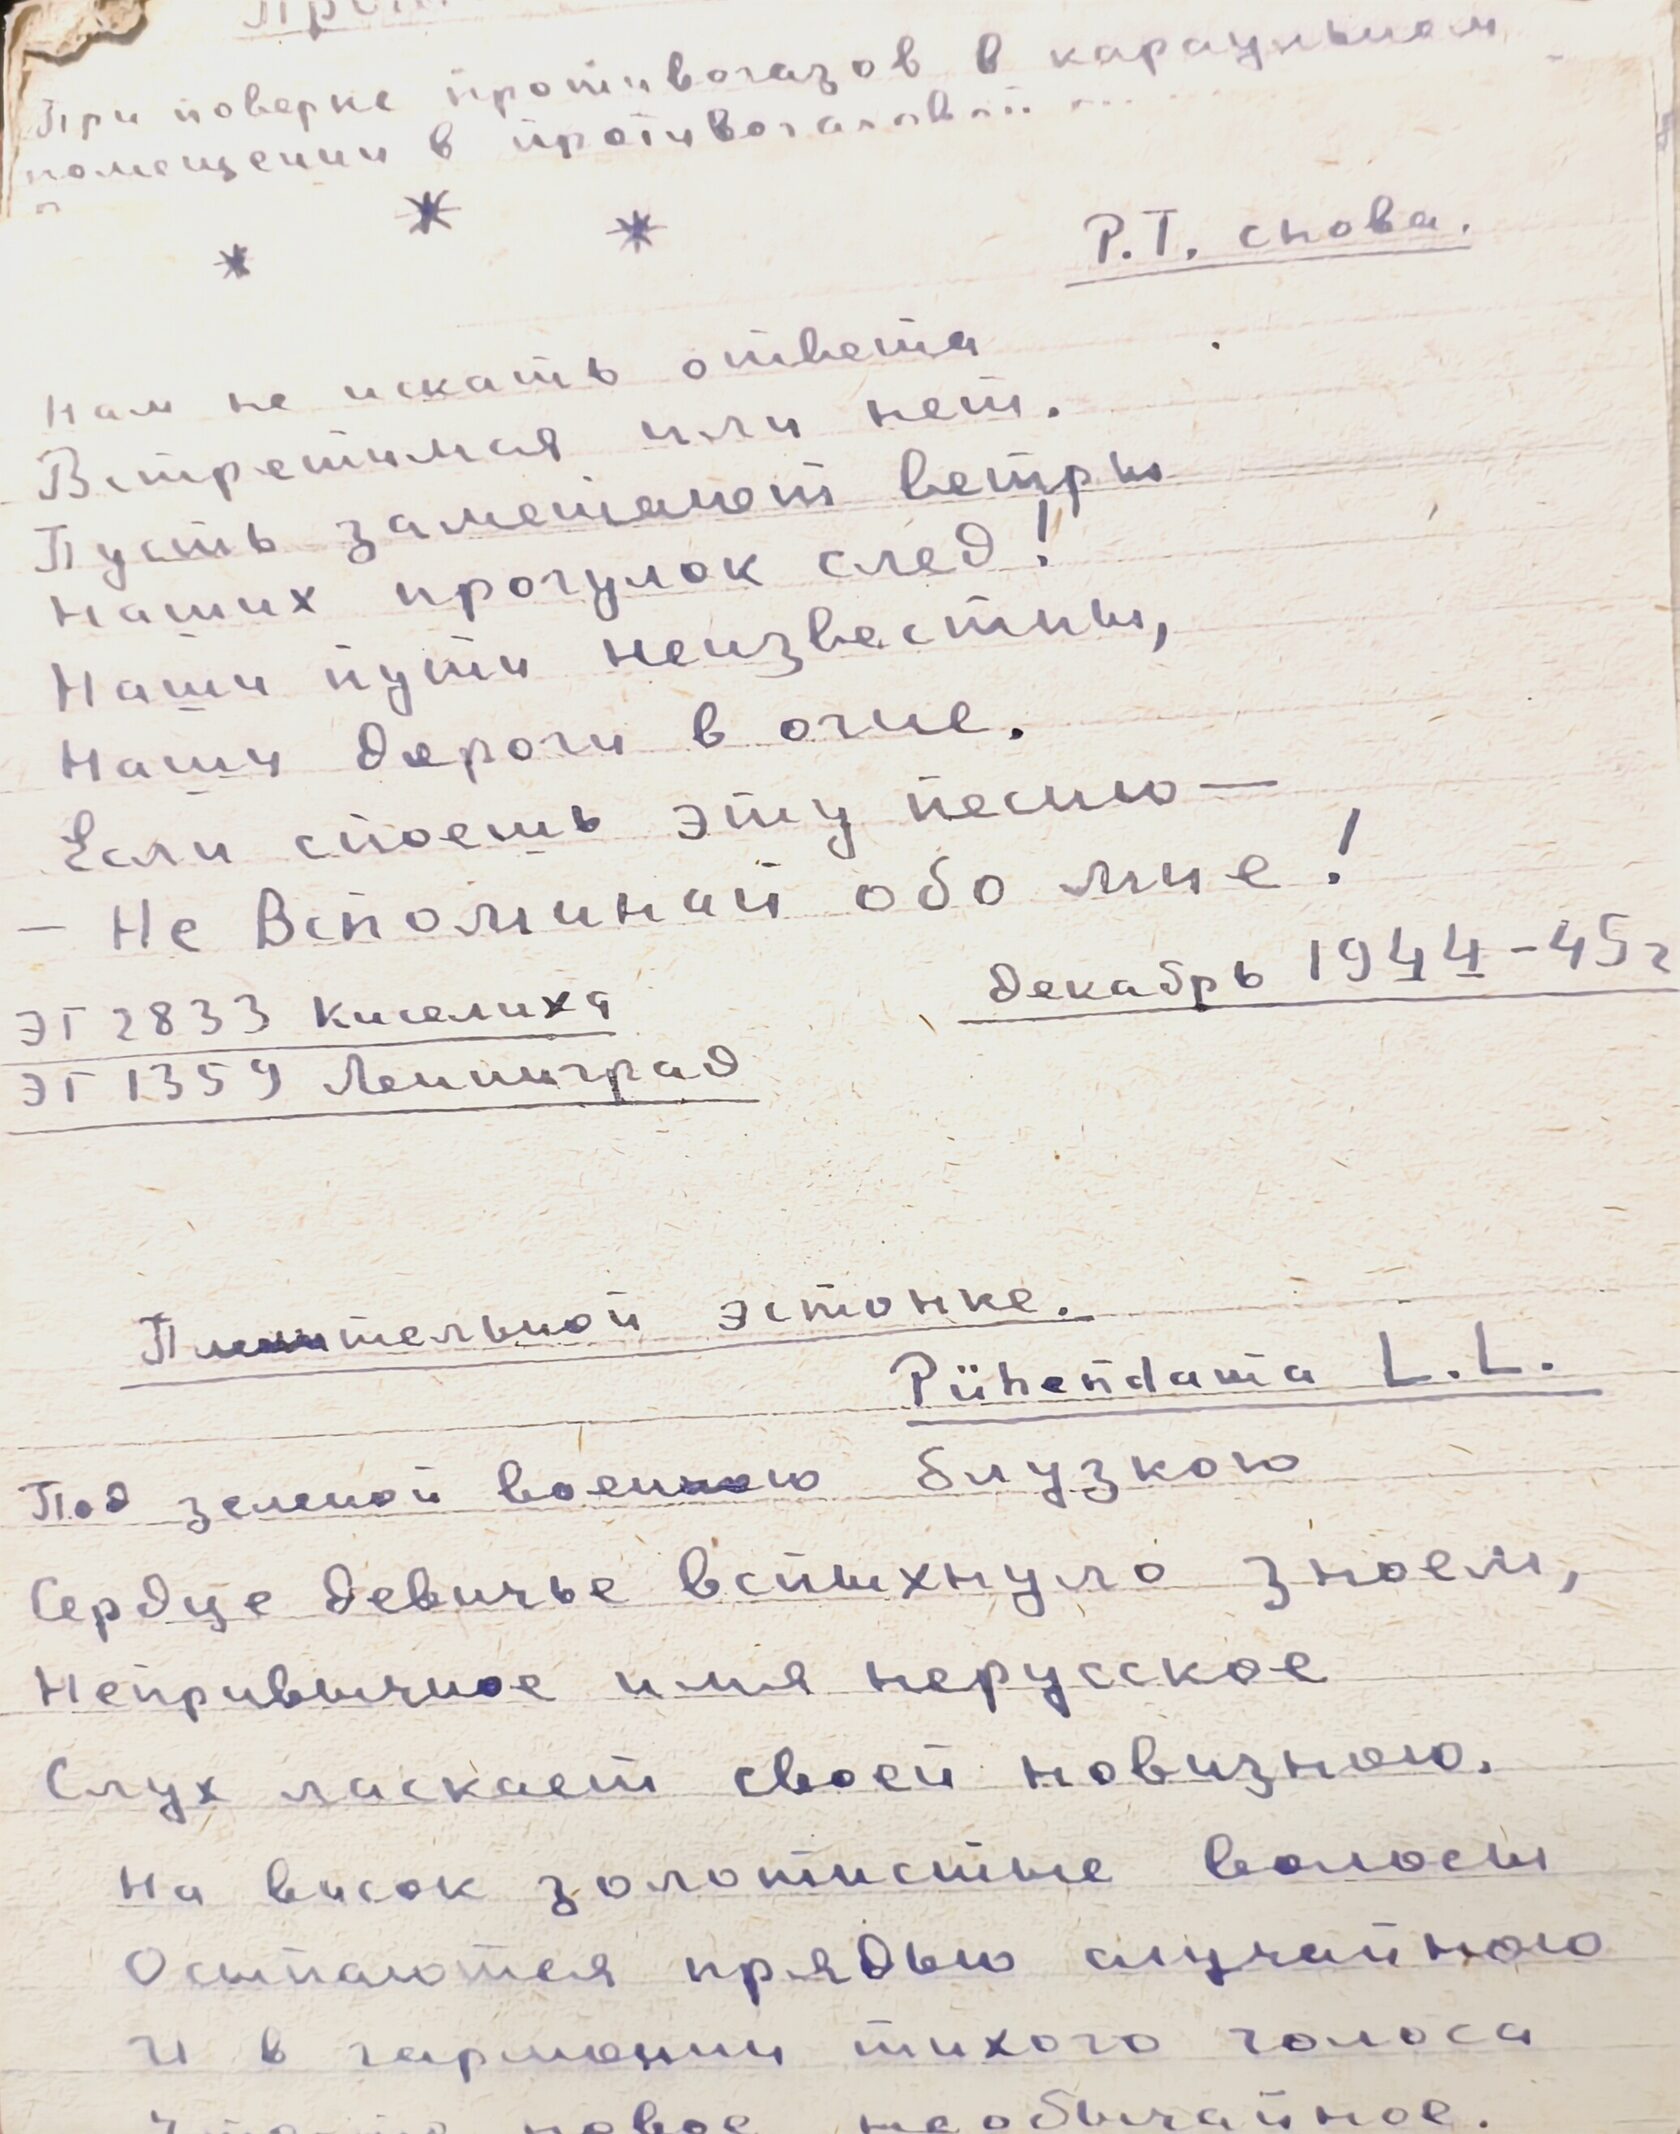 При поверке противогазов в караульном
помещении в
* * *
Р.Т. снова.
Нам не искать ответа
Встретимся или нет.
Пусть заметают ветры
Наших прогулок след!
Наши пути неизвестны,
Наши дороги в огне.
Если споешь эту песню —
— Не вспоминай обо мне!
Декабрь 1944-45г
ЭГ 2833 Киселиха
ЭГ 1359 Ленинград
Пленительной эстонке.
Pühendama L.L.
Под зеленой военною блузкою
Сердце девичье вспыхнуло зноем,
Непривычное имя нерусское
Слух ласкает своей новизною.
На висок золотистые волосы
Осыпаются прядью случайною
И в гармонии тихого голоса
новое необычайное.